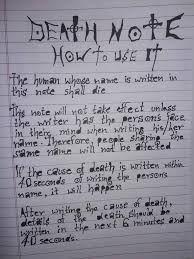 DEATH NOTE
HOW TO USE IT
The human whose name is written in
this note shall die
This note will not take effect unless
the writer has the person's face
in their mind when writing his/her
name. Therefore, people sharing the
same name will not be affected
If the cause of death is written within
40 seconds of writing the person's
name, it will happen
After writing the cause of death,
details of the death should be
written in the next 6 minutes and
40 seconds.